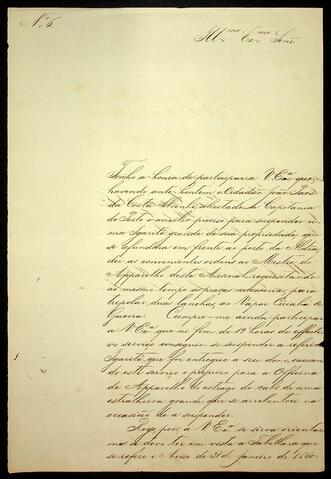 Nº 6.
Illmo Exmo Senr.
Tenho a honra de participar a V. Exª que,
havendo ante-hontem o Cidadão João
da Costa solicitado da Capitania
do Porto o auxilio preciso para suspender u-
ma Igarité grande de sua propriedade, que
se afundára em frente ao porto da
dei as convenientes ordens ao Mestre do
Apparelho deste Arsenal, requisitando
ao mesmo tempo as praças necessarias, para
tripolar duas lanchas ao Vapor de
Guerra. Cumpre-me ainda participar
a V. Exª que no fim de 19 horas de
vo serviço conseguio-se suspender a referida
Igarité, que foi entregue a seu dono, causan-
do este serviço o prejuizo para a Officina
de Apparelho do estrago do cabo de uma
estralheira grande que se arrebentou na
occasião de a suspender.
Rogo, pois, a V. Exª se sirva orientar-
me se devo ter em vista a Tabella a que
se refere o Aviso de 31 de Janeiro de